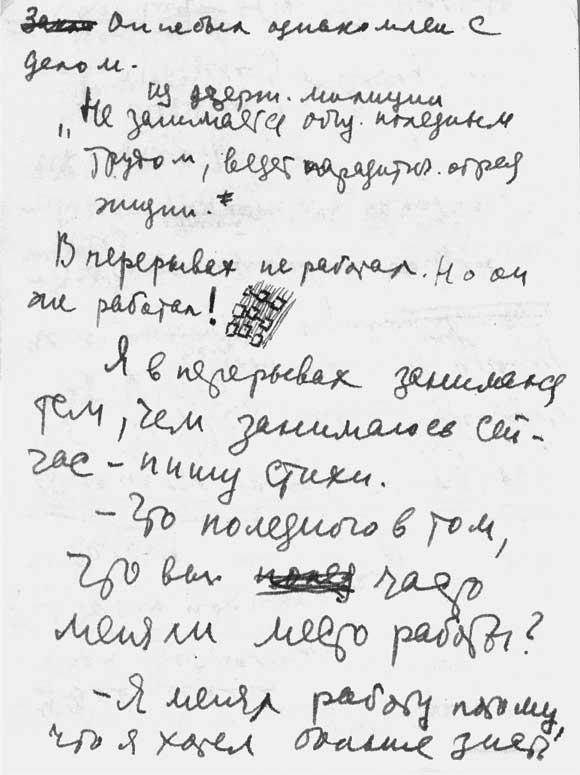 Он не был ознакомлен с
делом.
из дзерж. милиции
„Не занимается общ. полезным
трудом, ведет паразитич. образ
жизни.*
В перерывах не работал. Но он
же работал!
Я в перерывах занимался
тем, чем занимаюсь сей-
час – пишу стихи.
– Что полезного в том,
что вы часто
меняли место работы?
– Я менял работу потому,
что я хотел больше знать